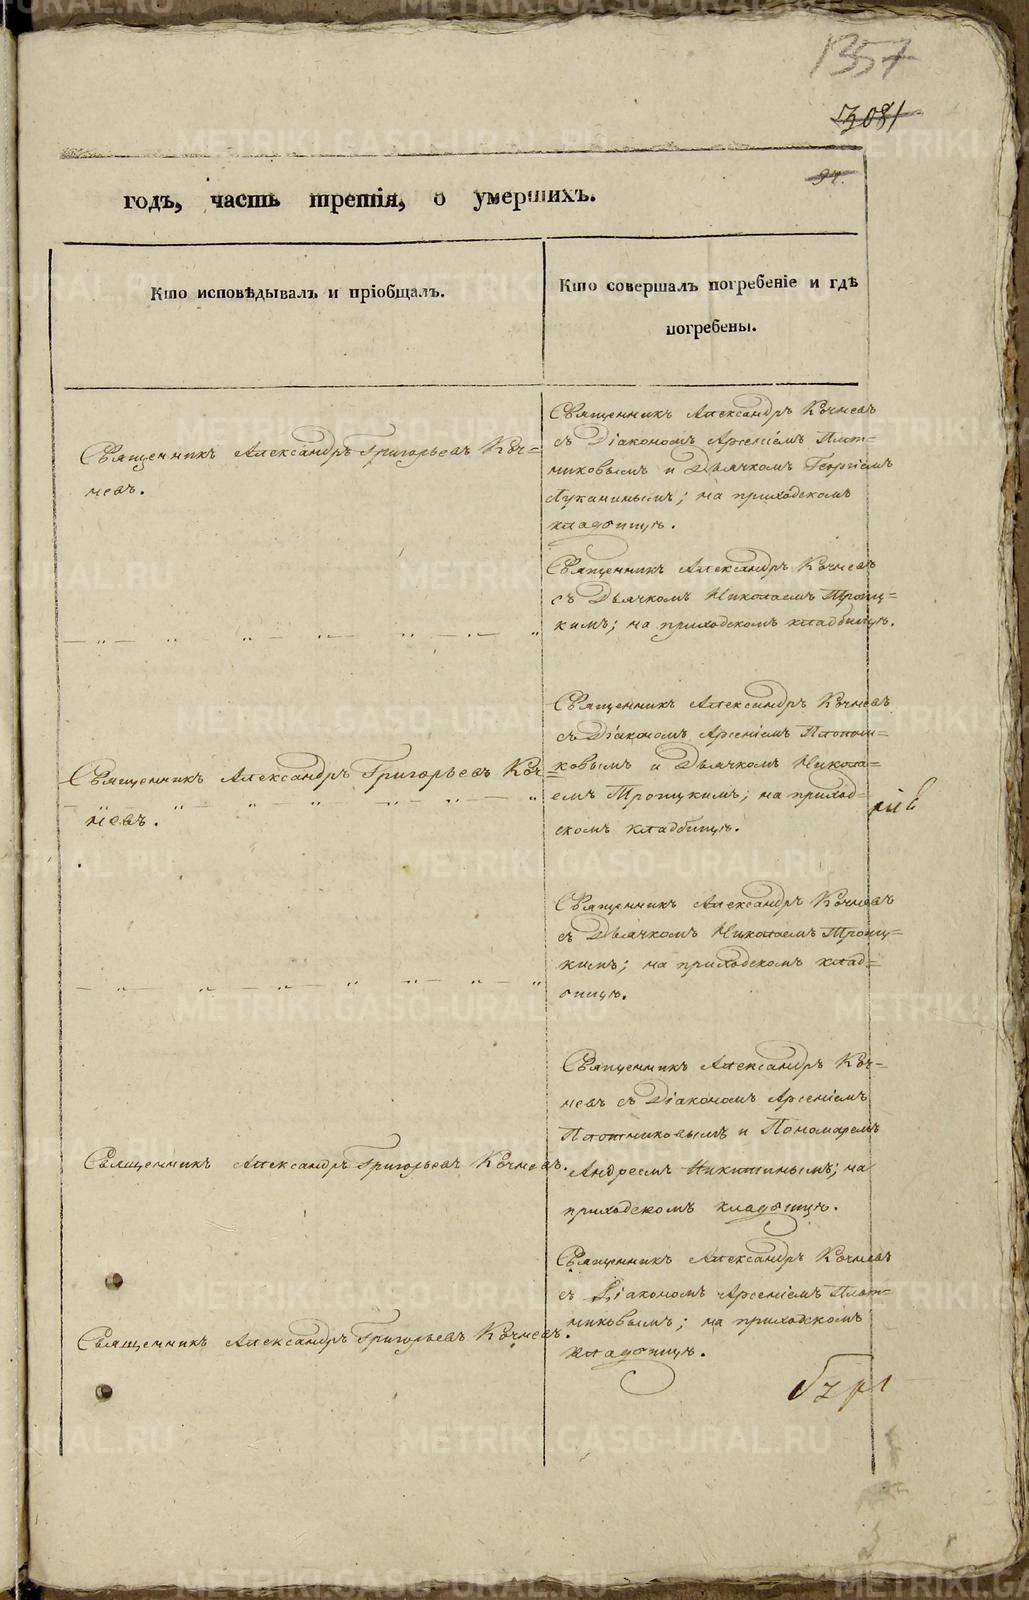 1357
3081
94.
годъ, часть третія, о умершихъ.
Кто исповѣдывалъ и пріобщалъ.
Кто совершалъ погребеніе и гдѣ
погребены.
Священникъ Александръ Григорьевъ Коч=
невъ.
Священникъ Александръ Кочневъ
съ Діакономъ Арсеніемъ Плот=
никовымъ и Дьячкомъ Георгіемъ
Лукинымъ; на приходскомъ
кладбищѣ.
— „ — „ „ — „ — „ — „ — „
Священникъ Александръ Кочневъ
съ Дьячкомъ Николаемъ Троиц=
кимъ; на приходскомъ кладбищѣ.
Священникъ Александръ Григорьевъ Коч=
невъ.
Священникъ Александръ Кочневъ
съ Діакономъ Арсеніемъ Плотни=
ковымъ и Дьячкомъ Никола=
емъ Троицкимъ; на приход=
скомъ кладбищѣ.
— „ — „ — „ — „ — „ — „ — „
Священникъ Александръ Кочневъ
съ Дьячкомъ Николаемъ Троиц=
кимъ; на приходскомъ клад=
бищѣ.
Священникъ Александръ Григорьевъ Кочневъ.
Священникъ Александръ Коч=
невъ съ Діакономъ Арсеніемъ
Плотниковымъ и Пономаремъ
Андреемъ Никитинымъ; на
приходскомъ кладбищѣ.
Священникъ Александръ Григорьевъ Кочневъ.
Священникъ Александръ Кочневъ
съ Діакономъ Арсеніемъ Плот=
никовымъ; на приходскомъ
кладбищѣ.
METRIKI.GASO-URAL.RU